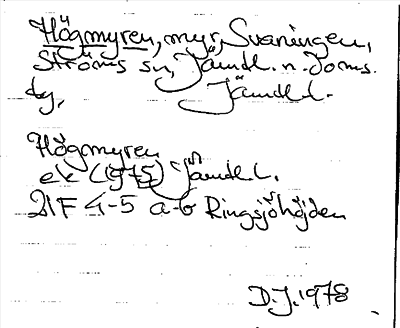 Högmyren, myr, Svaningen,
Ströms sn, Jämtl. n. Doms.
dg, Jämtl l.
Högmyren
ek (1975) Jämtl.
21F 4-5 a-b Ringsjöhöjden
D.J. 1978